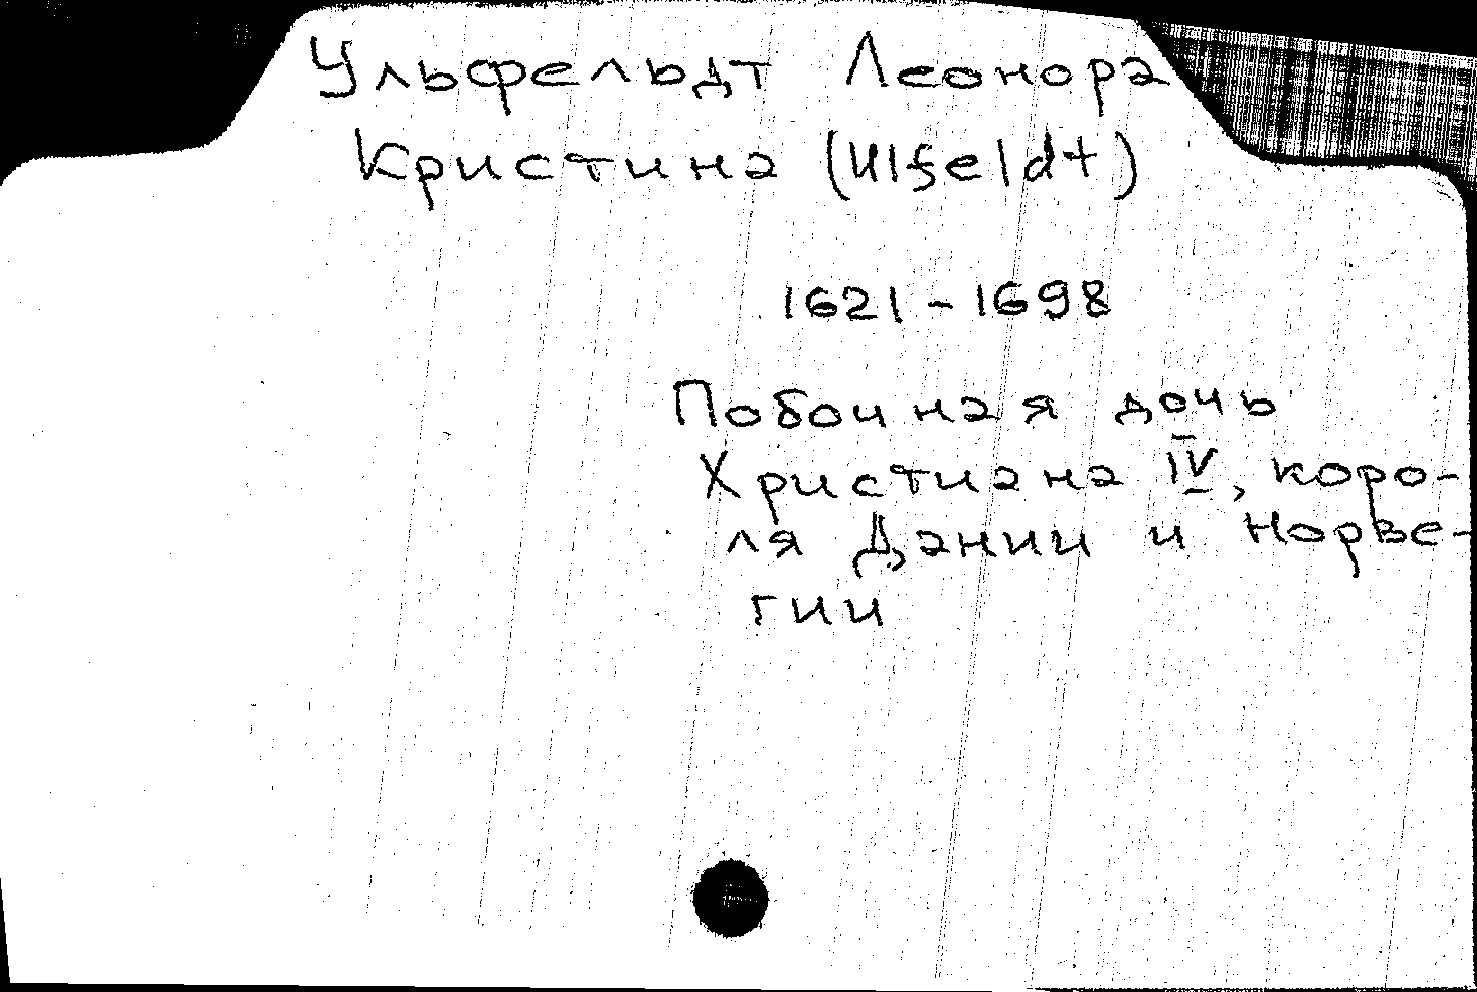 Ульфельдт Леонора
Кристина (Ulfeldt)
1621 - 1698
Побочная дочь
Христиана IV, коро-
ля Дании и Норве-
гии